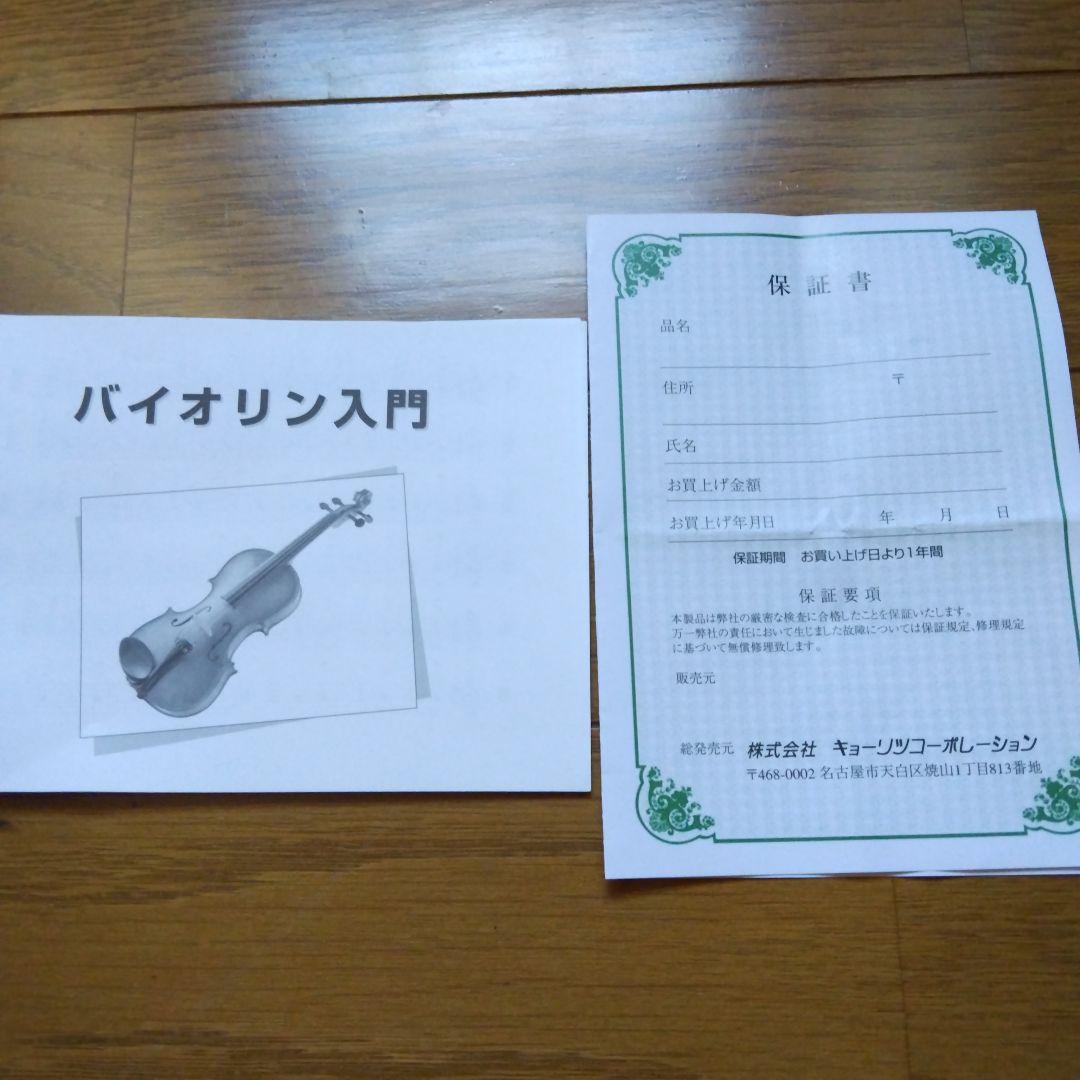 バイオリン入門
保証書
品名
住所 〒
氏名
お買上げ金額
お買上げ年月日 年 月 日
保証期間 お買い上げ日より1年間
保証要項
本製品は弊社の厳密な検査に合格したことを保証いたします。
万一弊社の責任において生じました故障については保証規定、修理規定
に基づいて無償修理致します。
販売元
総発売元 株式会社 キョーリツコーポレーション
〒468-0002 名古屋市天白区焼山1丁目813番地